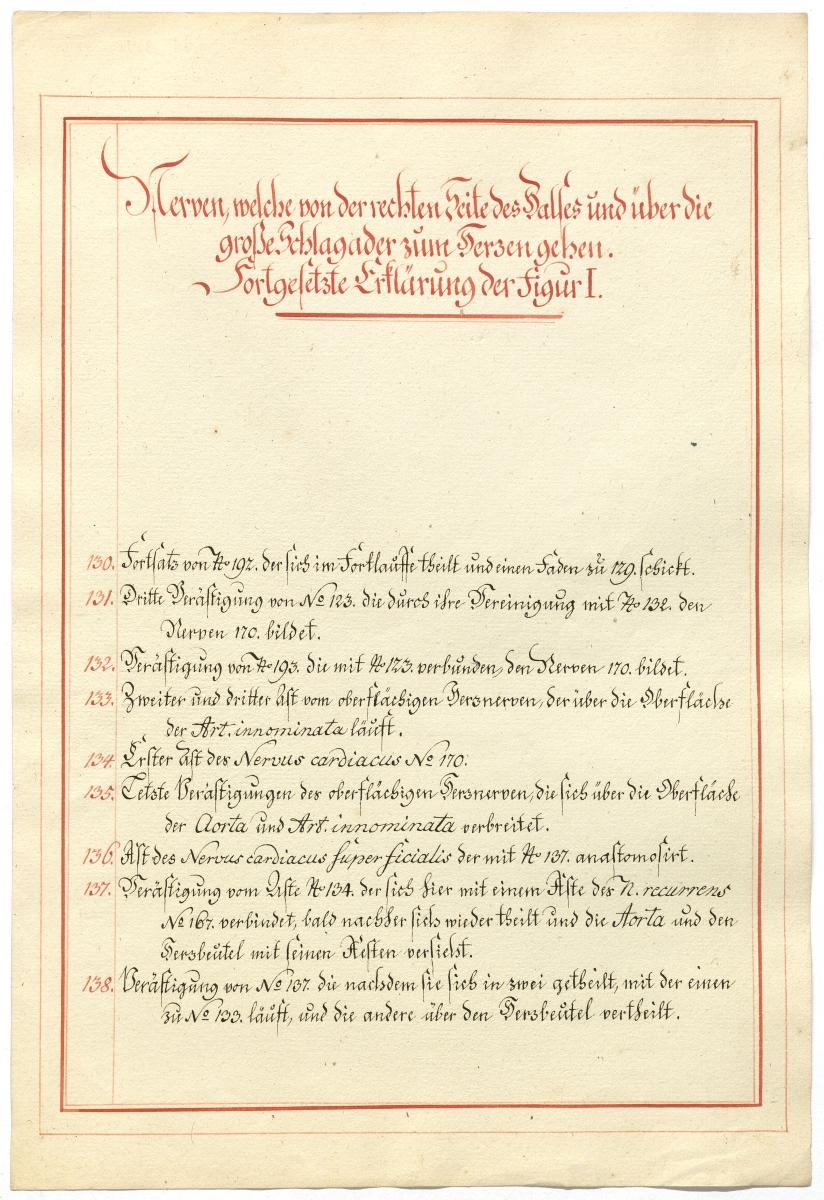 Nerven, welche von der rechten Seite des Halses und über die
große Schlagader zum Herzen gehen.
Fortgesetzte Erklärung der Figur I.
130. Fortsatz von No 192. der sich im Fortlauffe theilt und einen Faden zu 129. schickt.
131. Dritte Verästigung von No 123. die durch ihre Vereinigung mit No 132. den
Nerven 170. bildet.
132. Verästigung von No 193. die mit No 123. verbunden, den Nerven 170. bildet.
133. Zweiter und dritter Ast vom oberflächigen Herznerven, der über die Oberfläche
der Art. innominata läuft.
134. Erster Ast des Nervus cardiacus No 170.
135. Letzte Verästigungen des oberflächigen Herznerven, die sich über die Oberfläche
der Aorta und Art. innominata verbreitet.
136. Ast des Nervus cardiacus superficialis der mit No 137. anastomosirt.
137. Verästigung vom Aste No 134. der sich hier mit einem Aste des N. recurrens
No 167. verbindet, bald nachher sich wieder theilt und die Aorta und den
Herzbeutel mit seinen Aesten versieht.
138. Verästigung von No 137. die nachdem sie sich in zwei getheilt, mit der einen
zu No 133. läuft, und die andere über den Herzbeutel vertheilt.